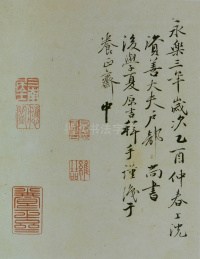 永樂三年歲次乙酉仲春上浣
資善大夫戶部尚書
後學夏原吉拜手謹識于
養正齋中